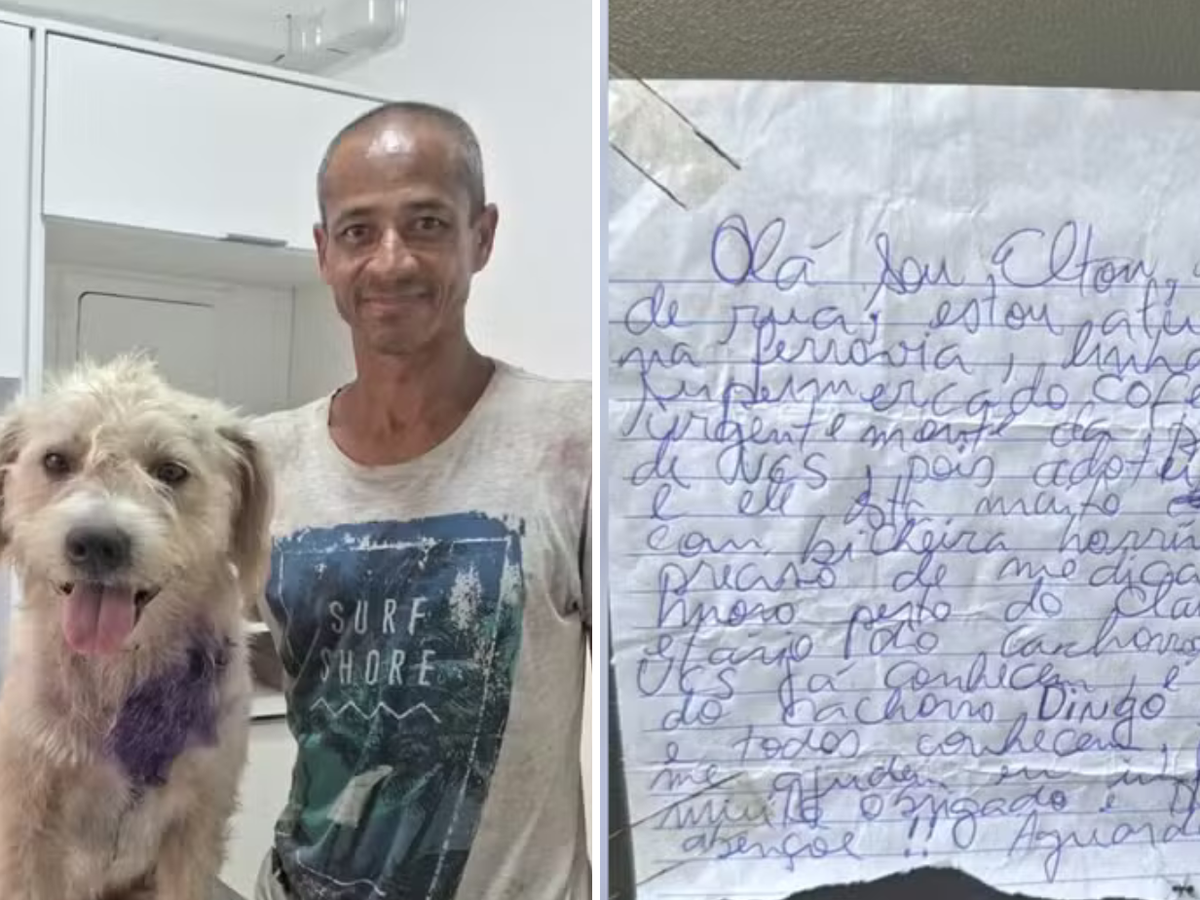 SURF
SHORE
Olá sou Elton,
de rua, estou atu
na ferrovia, linha
supermercado cof
urgentemente da
de vcs, pois adotei
e ele stá muito
com bicheira horri
preciso de medica
moro perto do cla
do cachorro
vcs já conhecem, e
do cachorro, Dingo
e todos conhecem,
me ajudem em
muito obrigado e D
abençoe !! Aguard